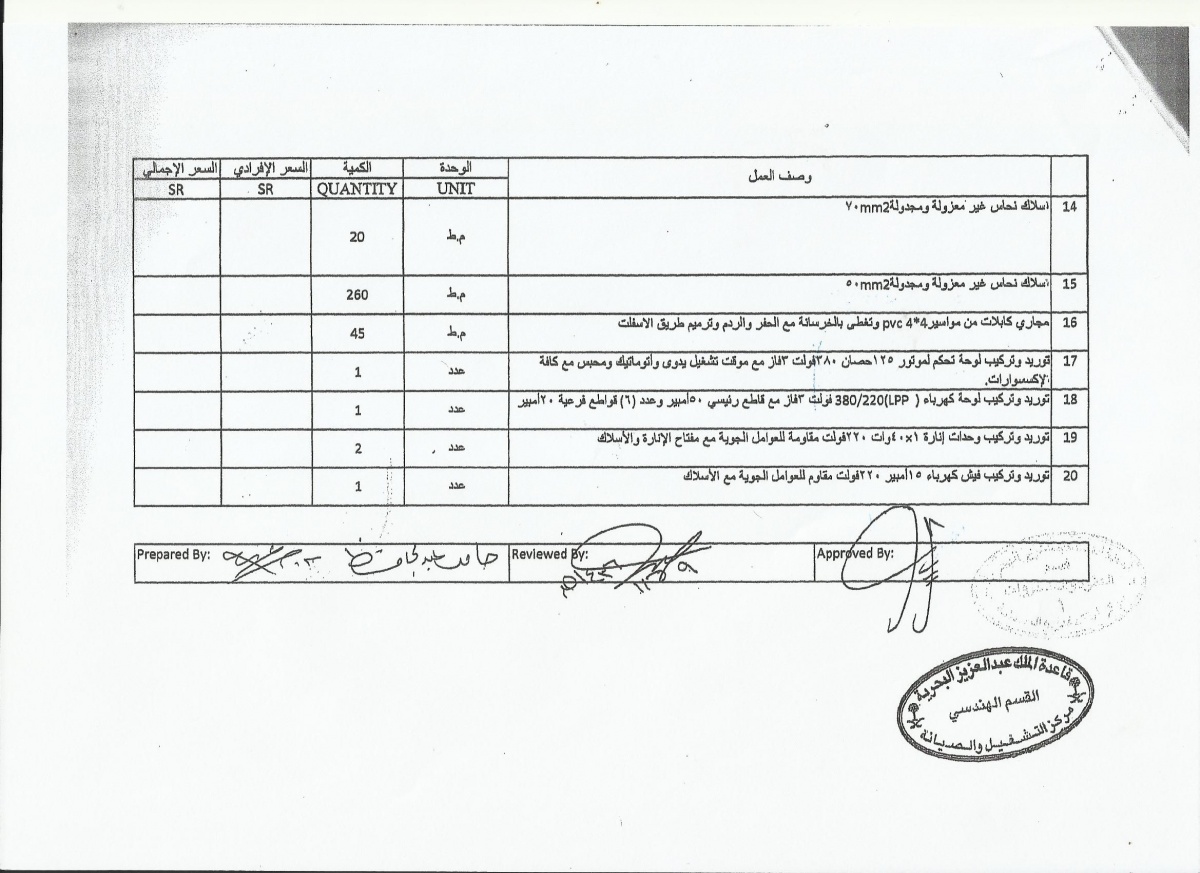 وصف العمل الوحدة الكمية السعر الإفرادي السعر الإجمالي
UNIT QUANTITY SR SR
14 اسلاك نحاس غير معزولة ومجدولة٧٠mm2 م.ط 20
15 اسلاك نحاس غير معزولة ومجدولة٥٠mm2 م.ط 260
16 مجاري كابلات من مواسير4*4 pvc وتغطى بالخرسانة مع الحفر والردم وترميم طريق الاسفلت م.ط 45
17 توريد وتركيب لوحة تحكم لموتور ١٢٥حصان ٣٨٠فولت ٣فاز مع موقت تشغيل يدوى وأتوماتيك ومحبس مع كافة
الإكسسوارات. عدد 1
18 توريد وتركيب لوحة كهرباء ( LPP)380/220 فولت ٣فاز مع قاطع رئيسي ٥٠أمبير وعدد (٦) قواطع فرعية ٢٠أمبير عدد 1
19 توريد وتركيب وحدات إنارة ١×٤٠وات ٢٢٠فولت مقاومة للعوامل الجوية مع مفتاح الإنارة والأسلاك عدد 2
20 توريد وتركيب فيش كهرباء ١٥أمبير ٢٢٠فولت مقاوم للعوامل الجوية مع الأسلاك عدد 1
Prepared By: Reviewed By: Approved By:
قاعدة الملك عبدالعزيز البحرية
القسم الهندسي
مركز التشغيل والصيانة